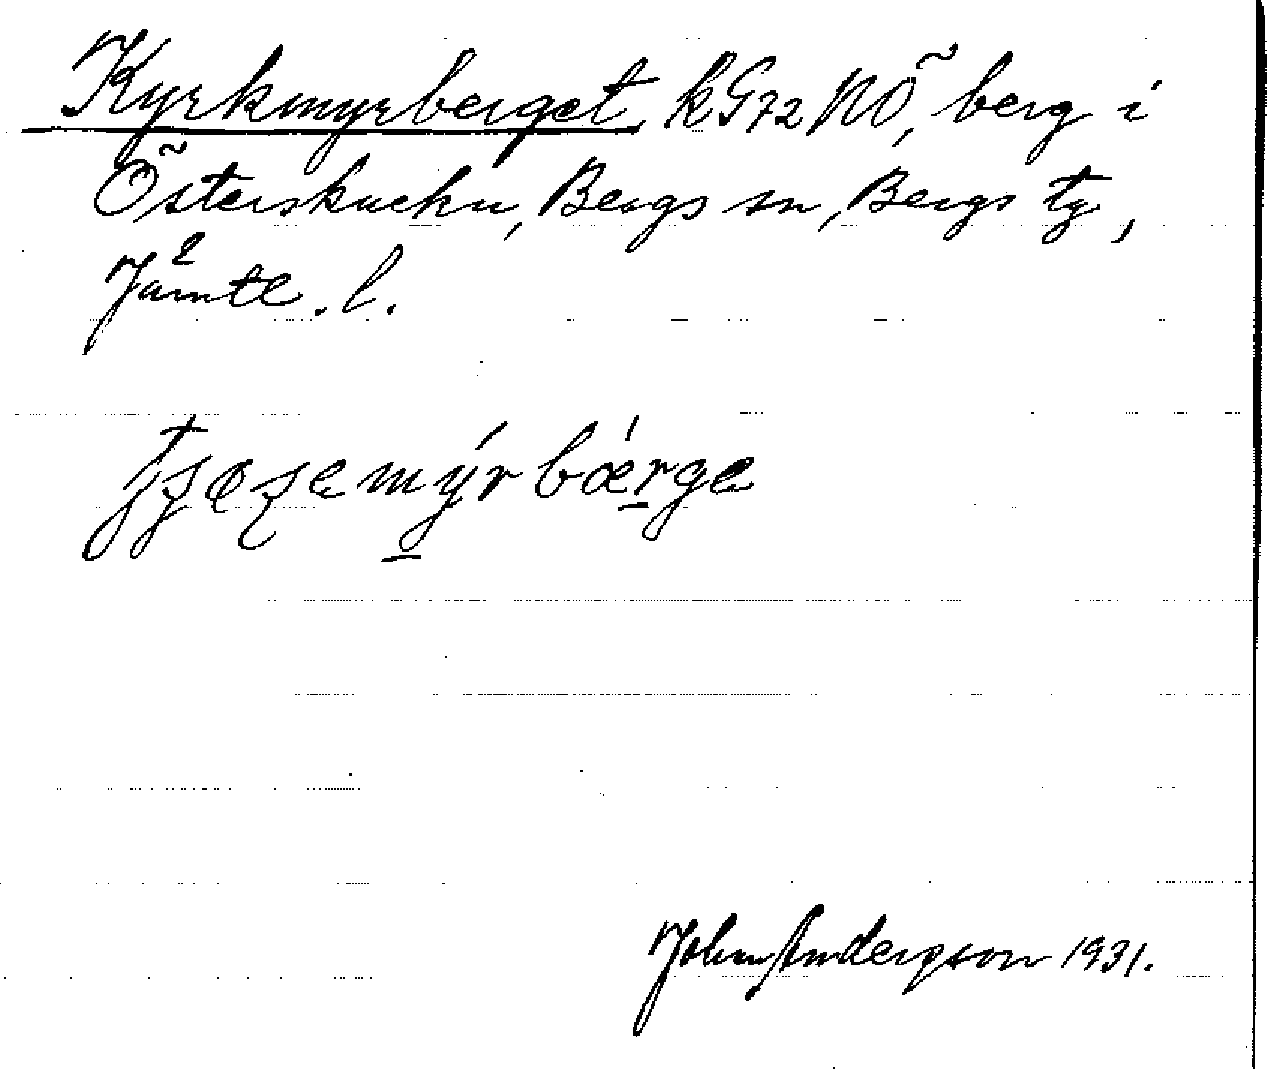 Kyrkmyrberget, kG72 NÖ, berg i
Österskucku, Bergs sn, Bergs tg,
Jämtl. l.
John Andersson 1931.